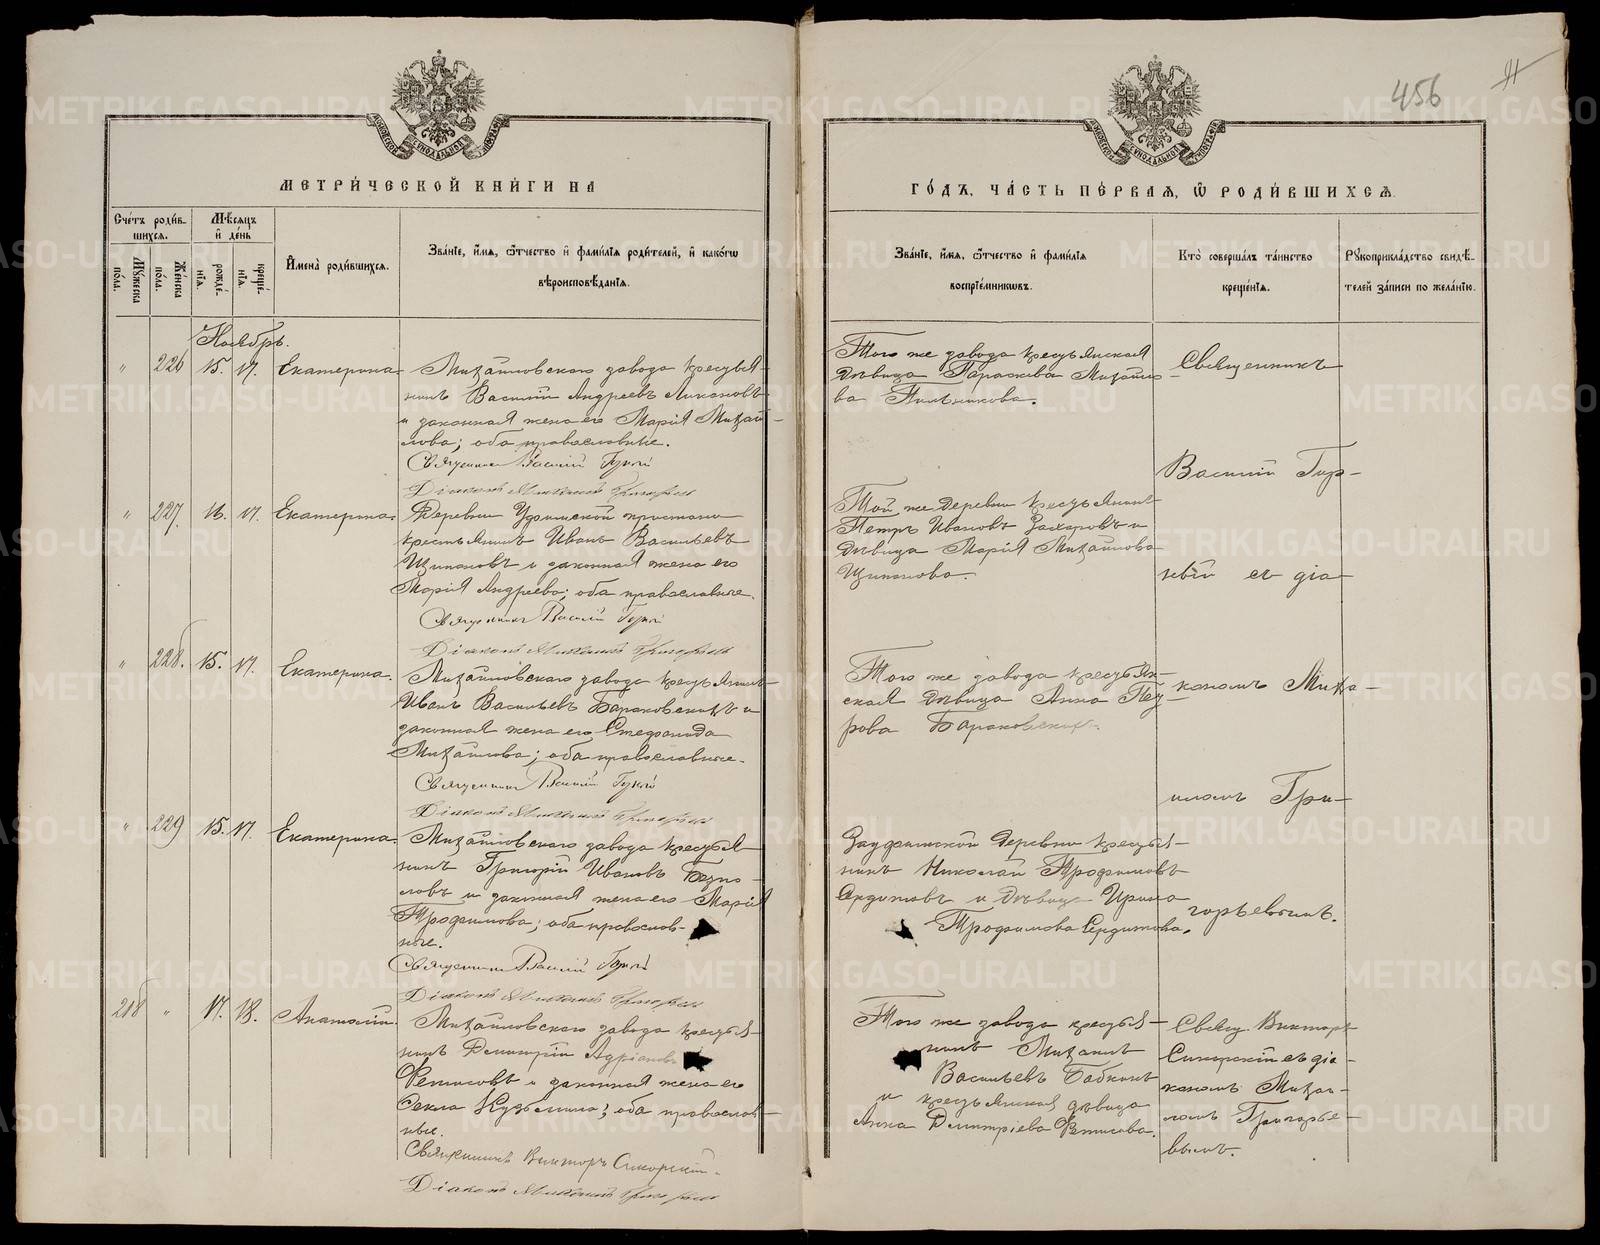 456
МЕТРИ́ЧЕСКОЙ КНИ́ГИ НА
ГО́ДЪ, ЧА́СТЬ ПЕ́РВАЯ, Ѡ РОДИ́ВШИХСЯ.
Сче́тъ роди́в-
шихся.
Мѣ́сяцъ
и де́нь
Му́жеска
по́ла.
Же́нска
по́ла.
рожде́-
нія.
креще́-
нія.
Имена̀ роди́вшихся.
Зва́ніе, и́мя, ѻ́тчество и фами́лія роди́телей, и како́гѡ
вѣроисповѣ́данія.
Зва́ніе, и́мя, ѻ́тчество и фами́лія
воспріе́мниковъ.
Кто̀ соверша́лъ та́инство
креще́нія.
Рукоприкла́дство свидѣ́-
телей за́писи по жела́нію.
Ноябрь.
" 226 15. 17. Екатерина
Михайловскаго завода крестья-
нинъ Василій Андреевъ
и законная жена его Марія Михай-
лова; оба православные.
Священникъ Василій
Діаконъ Михаилъ Григорьевъ
Того же завода крестьянская
дѣвица Параскева Михайло-
ва
Священникъ
Василій
" 227. 16. 17. Екатерина
Деревни Уфимской пристани
крестьянинъ Иванъ Васильевъ
Щипановъ и законная жена его
Марія Андреева; оба православные.
Священникъ Василій
Діаконъ Михаилъ Григорьевъ
Той же деревни крестьянинъ
Петръ Ивановъ Захаровъ и
дѣвица Марія Михайлова
Щипанова.
съ діа-
" 228. 15. 17. Екатерина.
Михайловскаго завода крестьянинъ
Иванъ Васильевъ Бараковскихъ и
законная жена его Стефанида
Михайлова; оба православные.
Священникъ Василій
Діаконъ Михаилъ Григорьевъ
Того же завода крестьян-
ская дѣвица Анна
Бараковских
кономъ Миха-
иломъ Гри-
" 229 15. 17. Екатерина.
Михайловскаго завода крестья-
нинъ Григорій Ивановъ
и законная жена его Марія
Трофимова; оба православ-
ные.
Священникъ Василій
Діаконъ Михаилъ Григорьевъ
Зауфимской деревни крестья-
нинъ Николай Трофимовъ
Сердитовъ и дѣвица Ирина
Трофимова Сердитова.
горьевымъ.
218 " 17. 18. Анатолій.
Михайловскаго завода крестья-
нинъ Димитрій Адріановъ
Фетисовъ и законная жена его
Фекла Кузьмина; оба православ-
ные.
Священникъ Викторъ Сикорскій.
Діаконъ Михаилъ Григорьевъ
Того же завода крестья-
нинъ Михаилъ
Васильевъ Бабкинъ
и крестьянская дѣвица
Анна Димитріева Фетисова.
Свящ. Викторъ
Сикорскій съ діа-
кономъ Михаи-
ломъ Григорье-
вымъ.
METRIKI.GASO-URAL.RU